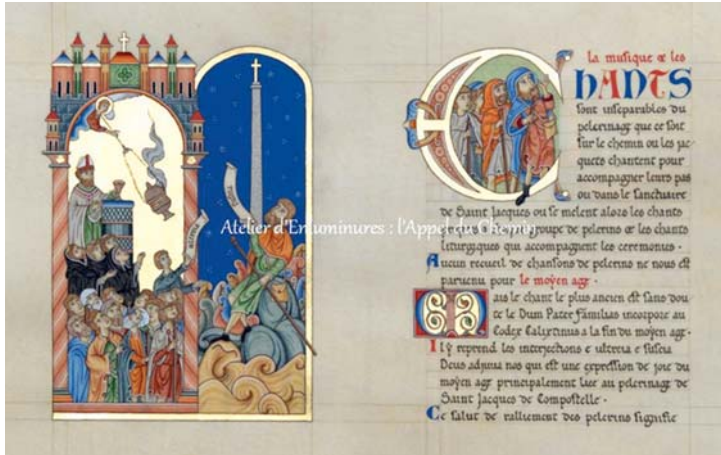 la musique & les
CHANTS
sont inseparables du
pelerinage que ce soit
sur le chemin ou les jac
quets chantent pour
accompagner leurs pas
ou dans le sanctuaire
de Saint Jacques ou se melent alors les chants
Atelier d'Enluminures : l'Appel du Chemin
oupe de pelerins & les chants
liturgiques qui accompagnent les ceremonies ·
Aucun recueil de chansons de pelerins ne nous est
parvenu pour le moyen age ·
Mais le chant le plus ancien est sans dou
te le Dum Pater familias incorpore au
Codex Calixtinus a la fin du moyen age ·
Il y reprend les interjections e ultreia e suseia
Deus adjuva nos qui est une expression de joie du
moyen age principalement liee au pelerinage de
Saint Jacques de Compostelle ·
Ce salut de ralliement des pelerins signifie